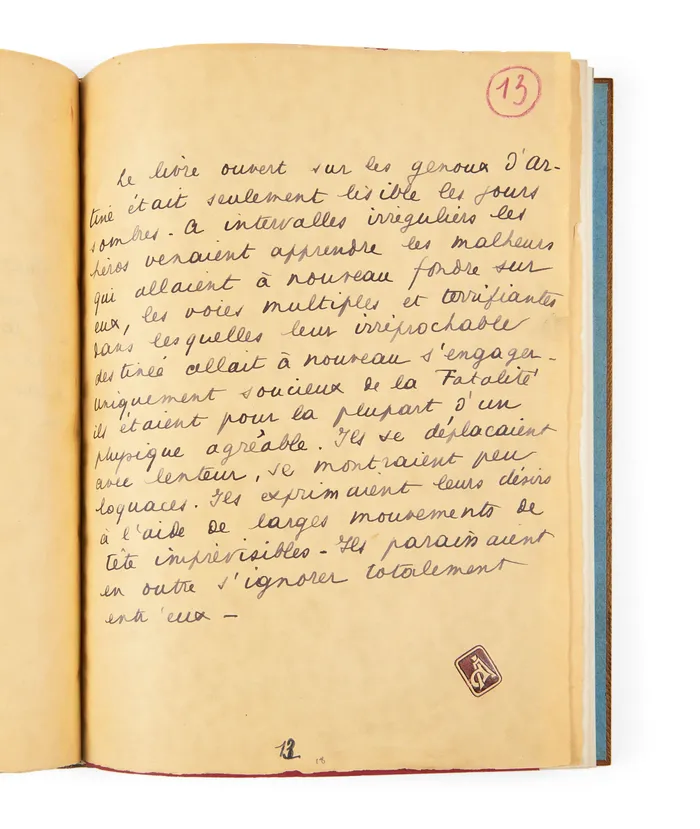 13
Le livre ouvert sur les genoux d'Ar-
tine était seulement lisible les jours
sombres - A intervalles irréguliers les
héros venaient apprendre les malheurs
qui allaient à nouveau fondre sur
eux, les voies multiples et terrifiantes
dans lesquelles leur irréprochable
destinée allait à nouveau s'engager -
Uniquement soucieux de la Fatalité
ils étaient pour la plupart d'un
physique agréable. Ils se déplaçaient
avec lenteur, se montraient peu
loquaces. Ils exprimaient leurs désirs
à l'aide de larges mouvements de
tête imprévisibles - Ils paraissaient
en outre s'ignorer totalement
entr'eux -